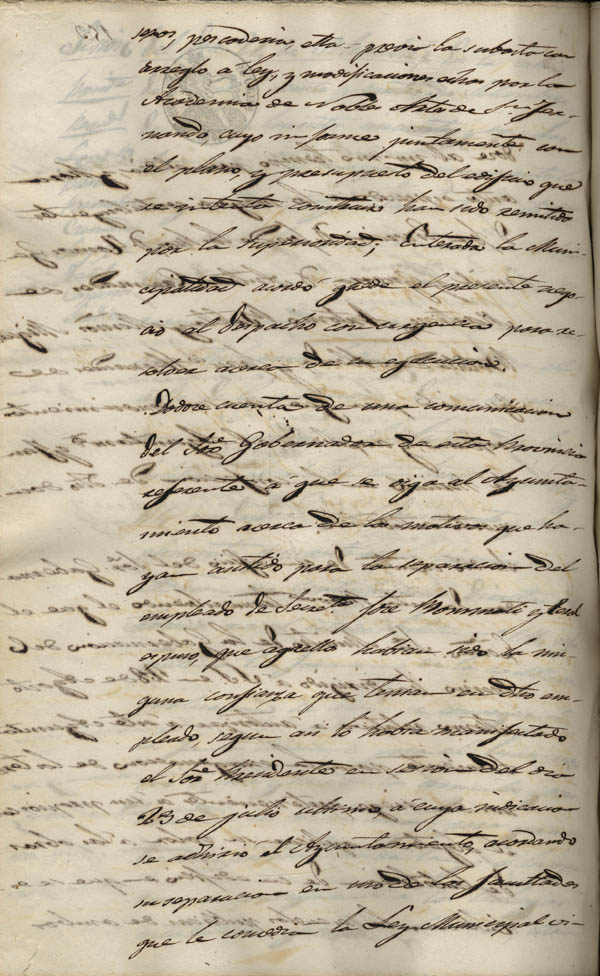 previa la subasta con
arreglo a ley, y modificaciones echas por la
Academia de Nobles Artes de Sn. Fer-
nando, cuyo informe juntamente con
el plano, y presupuesto del edificio que
se intenta construir han sido remitido
por la Superioridad; Enterada la Muni-
cipalidad acordó quede el presente nego-
cio al despacho con urgencia para re-
solver acerca de su egecucion.
Diose cuenta de una comunicacion
del Sor. Gobernador de esta Provincia
referente a que se oiga al Ayunta-
miento acerca de los motivos que ha-
yan existido para la separacion del
empleado de Secreta. José y se
espuso, que aquello habian sido la nin-
guna confianza que tenian en dho em-
pleado, segun asi lo habia manifestado
el Sor. Presidente en sesion del dia
23 de julio ultimo, a cuya indicacion
se adhirió el Ayuntamiento, acordando
su separacion en uso de las facultades
que le concedia la Ley Municipal vi-